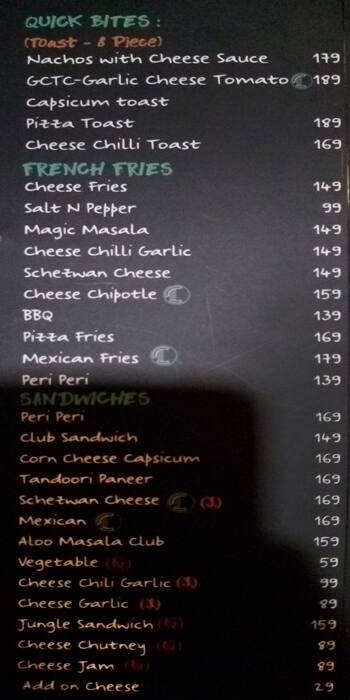 QUICK BITES :
(Toast - 8 Piece)
Nachos with Cheese Sauce 179
GCTC-Garlic Cheese Tomato 189
Capsicum toast
Pizza Toast 189
Cheese Chilli Toast 169
FRENCH FRIES
Cheese Fries 149
Salt N Pepper 99
Magic Masala 149
Cheese Chilli Garlic 149
Schezwan Cheese 149
Cheese Chipotle 159
BBQ 139
Pizza Fries 169
Mexican Fries 179
Peri Peri 139
SANDWICHES
Peri Peri 169
Club Sandwich 149
Corn Cheese Capsicum 169
Tandoori Paneer 169
Schezwan Cheese 169
Mexican 169
Aloo Masala Club 159
Vegetable 59
Cheese Chili Garlic 99
Cheese Garlic 89
Jungle Sandwich 159
Cheese Chutney 89
Cheese Jam 89
Add on Cheese 29